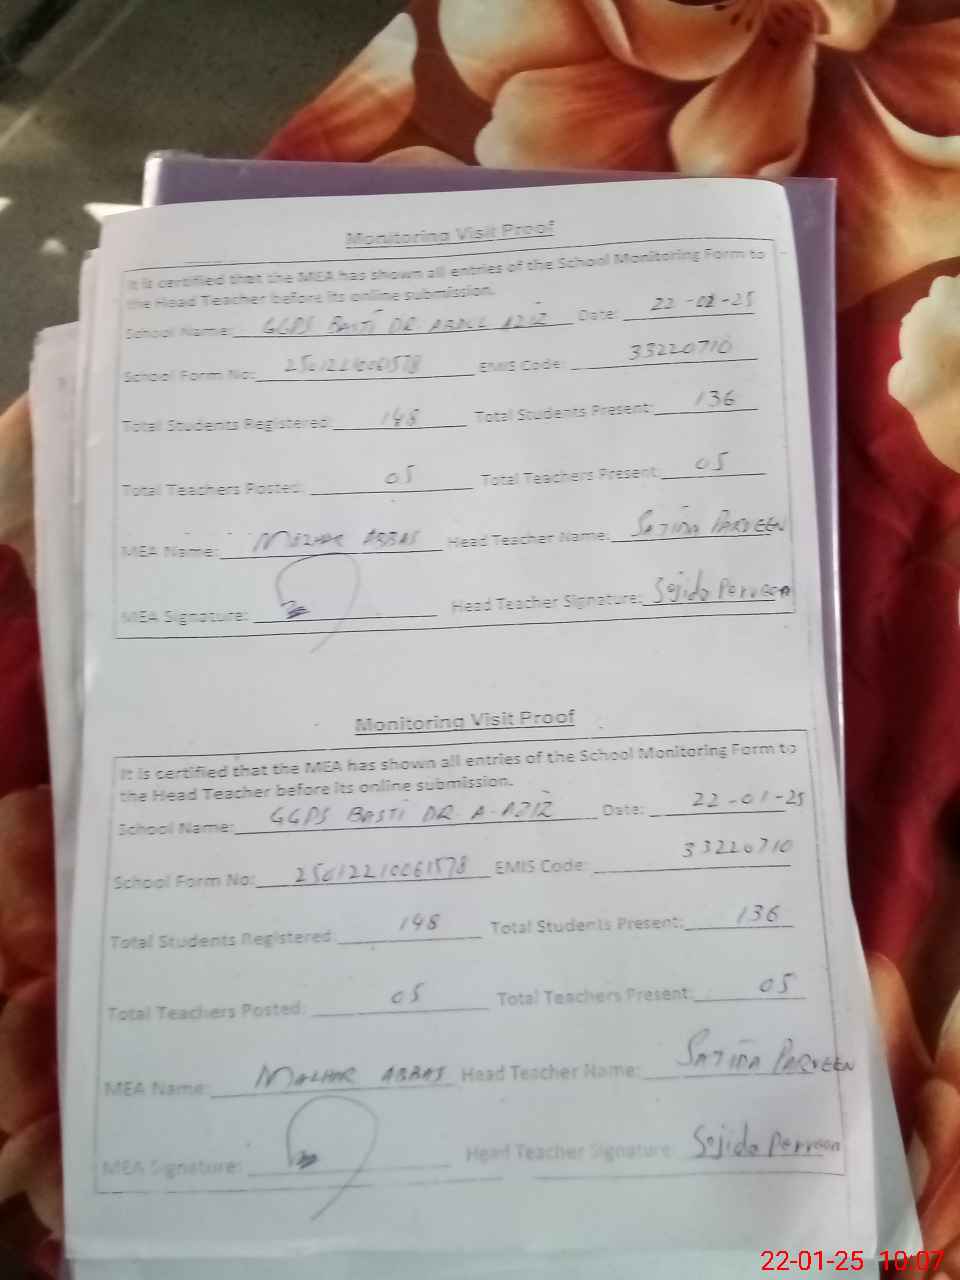 Monitoring Visit Proof
It is certified that the MEA has shown all entries of the School Monitoring Form to
the Head Teacher before its online submission.
School Name: GGPS BASTI DR. ABDUL AZIZ Date: 22-01-25
School Form No: 25012210061578 EMIS Code: 33220710
Total Students Registered: 148 Total Students Present: 136
Total Teachers Posted: 05 Total Teachers Present: 05
MEA Name: MAZHAR ABBAS Head Teacher Name: SAJIDA PARVEEN
MEA Signature: Head Teacher Signature: Sajida Perveen
Monitoring Visit Proof
It is certified that the MEA has shown all entries of the School Monitoring Form to
the Head Teacher before its online submission.
School Name: GGPS BASTI DR A-AZIZ Date: 22-01-25
School Form No: 25012210061578 EMIS Code: 33220710
Total Students Registered: 148 Total Students Present: 136
Total Teachers Posted: 05 Total Teachers Present: 05
MEA Name: MAZHAR ABBAS Head Teacher Name: SAJIDA PARVEEN
MEA Signature: Head Teacher Signature: Sajida Perveen
22-01-25 10:07